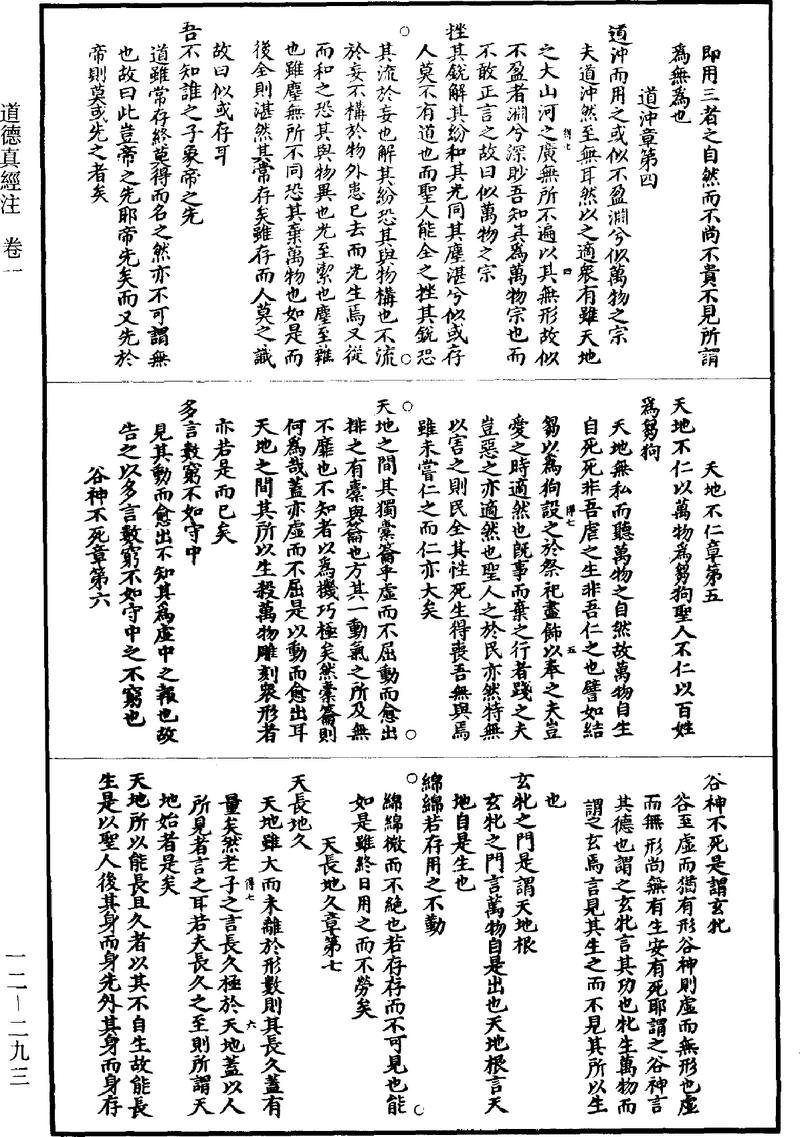 即用三者之自然而不尚不貴不見所謂
為無為也
道沖章第四
道沖而用之或似不盈淵兮似萬物之宗
夫道沖然至無耳然以之適眾有雖天地
之大山河之廣無所不遍以其無形故似
不盈者淵兮深眇吾知其為萬物宗也而
不敢正言之故曰似萬物之宗
挫其銳解其紛和其光同其塵湛兮似或存
人莫不有道也而聖人能全之挫其銳恐
其流於妄也解其紛恐其與物構也不流
於妄不構於物外患已去而光生焉又從
而和之恐其與物異也光至潔也塵至雜
也雖塵無所不同恐其棄萬物也如是而
後全則湛然其常存矣雖存而人莫之識
故曰似或存耳
吾不知誰之子象帝之先
道雖常存終莫得而名之然亦不可謂無
也故曰此豈帝之先耶帝先矣而又先於
帝則莫或先之者矣
天地不仁章第五
天地不仁以萬物為芻狗聖人不仁以百姓
為芻狗
天地無私而聽萬物之自然故萬物自生
自死死非吾虐之生非吾仁之也譬如結
芻以為狗設之於祭祀盡飾以奉之夫豈
愛之時適然也既事而棄之行者踐之夫
豈惡之亦適然也聖人之於民亦然特無
以害之則民全其性死生得喪吾無與焉
雖未嘗仁之而仁亦大矣
天地之間其獨橐籥乎虛而不屈動而愈出
排之有橐與籥也方其一動氣之所及無
不靡也不知者以為機巧極矣然橐籥則
何為哉蓋亦虛而不屈是以動而愈出耳
天地之間其所以生殺萬物雕刻眾形者
亦若是而已矣
多言數窮不如守中
見其動而愈出不知其為虛中之報也故
告之以多言數窮不如守中之不窮也
谷神不死章第六
谷神不死是謂玄牝
谷至虛而猶有形谷神則虛而無形也虛
而無形尚無有生安有死耶謂之谷神言
其德也謂之玄牝言其功也牝生萬物而
謂之玄焉言見其生之而不見其所以生
也
玄牝之門是謂天地根
玄牝之門言萬物自是出也天地根言天
地自是生也
綿綿若存用之不勤
綿綿微而不絕也若存存而不可見也能
如是雖終日用之而不勞矣
天長地久章第七
天長地久
天地雖大而未離於形數則其長久蓋有
量矣然老子之言長久極於天地蓋以人
所見者言之耳若夫長久之至則所謂天
地始者是矣
天地所以能長且久者以其不自生故能長
生是以聖人後其身而身先外其身而身存
道德真經注 卷一
一二—二九三
得七
四
得七
五
得七
六